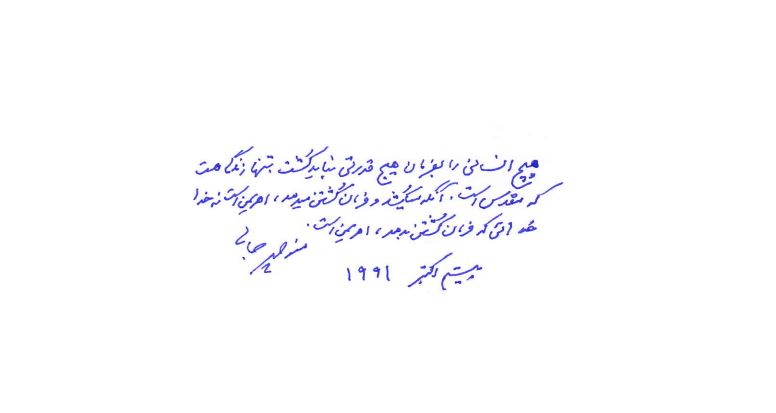 هیچ انسانی را بفرمان هیچ قدرتی نباید کُشت تنها زندگی هست
که مقدس است. آنکه میکُشد و فرمان کُشتن میدهد، اهریمن است نه خدا
خدائی که فرمان کُشتن بدهد، اهریمن است.
منوچهر جمالی
بیستم اکتبر ۱۹۹۱